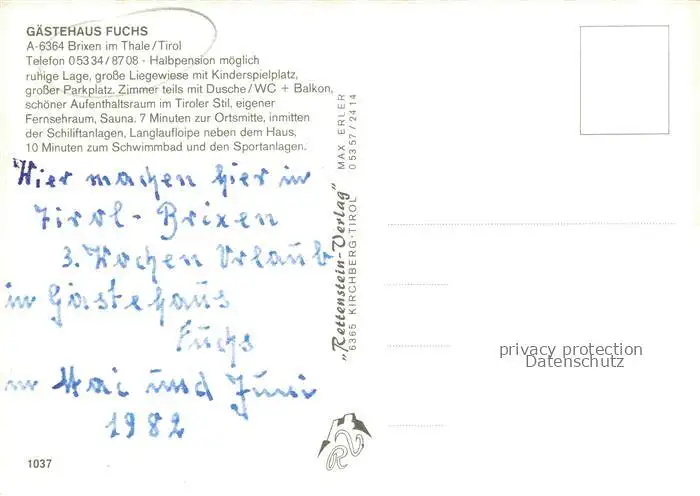 GÄSTEHAUS FUCHS
A-6364 Brixen im Thale/Tirol
Telefon 0 53 34 / 87 08 - Halbpension möglich
ruhige Lage, große Liegewiese mit Kinderspielplatz,
großer Parkplatz. Zimmer teils mit Dusche/WC + Balkon,
schöner Aufenthaltsraum im Tiroler Stil, eigener
Fernsehraum, Sauna. 7 Minuten zur Ortsmitte, inmitten
der Schiliftanlagen, Langlaufloipe neben dem Haus,
10 Minuten zum Schwimmbad und den Sportanlagen.
Hier machen hier in
Tirol - Brixen
3. Wochen Urlaub
im Gästehaus
Fuchs
im Mai und Juni
1982
1037
„Rettenstein-Verlag"
6365 KIRCHBERG-TIROL
MAX ERLER
0 53 57 / 24 14
RV
privacy protection
Datenschutz